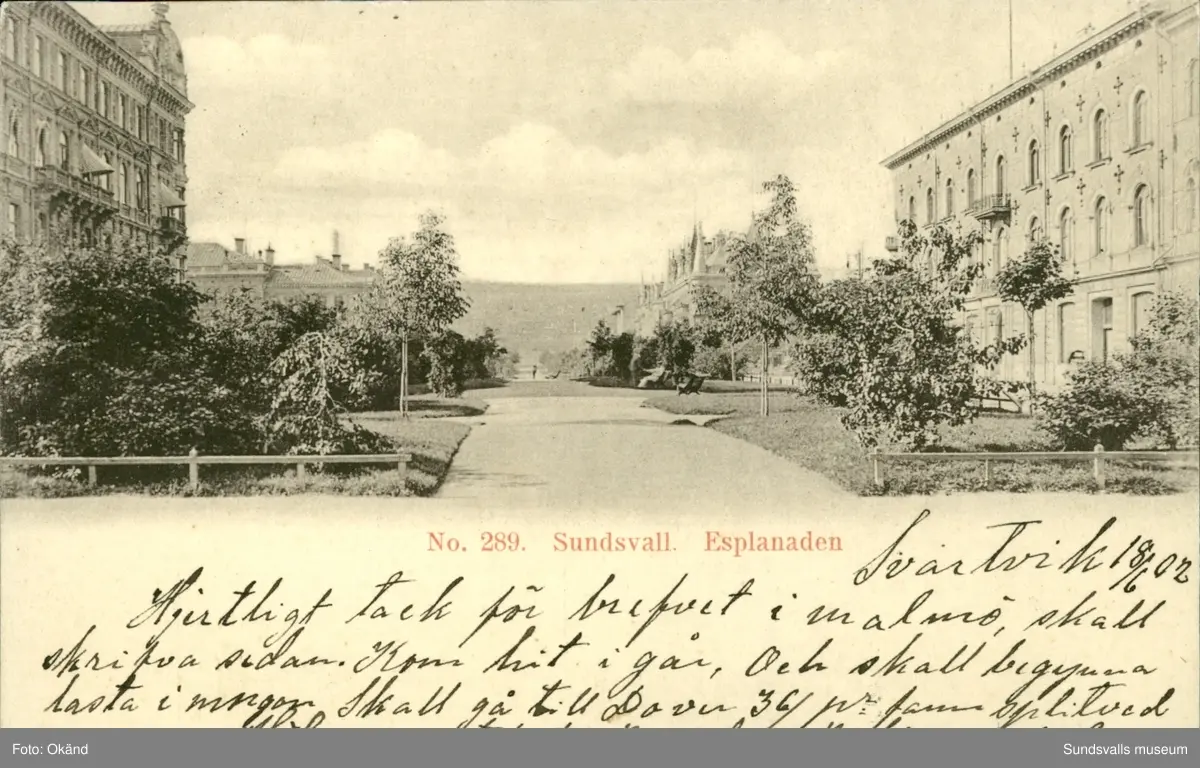 No. 289. Sundsvall. Esplanaden
Svartvik 18/6 02
Hjertligt tack för brefvet i malmö, skall
skrifva sedan. Kom hit i går, Och skall begynna
lasta i morgon Skall gå till Dover 36/ pr famn splitved
Foto: Okänd
Sundsvalls museum